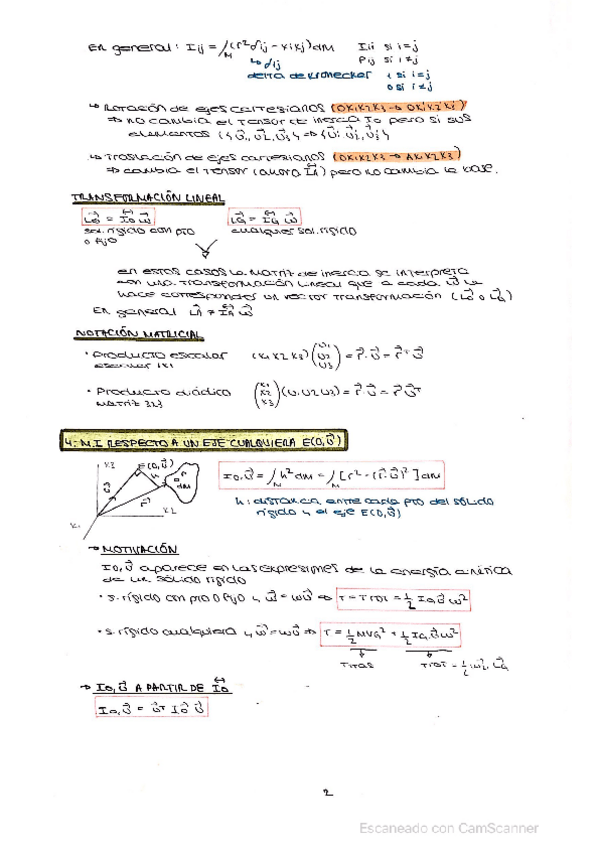 En general: Iij = ∫M (r² δij - xixj) dM   Iii si i=j
↳ δij   Pij si i≠j
delta de Kronecker   1 si i=j
0 si i≠j
↳ Rotación de ejes cartesianos (OX1X2X3 → OX'1X'2X'3)
⇒ no cambia el tensor de inercia Io pero si sus
elementos
↳ Traslación de ejes cartesianos (OX1X2X3 → AX1X2X3)
⇒ cambia el tensor (ahora IA) pero no cambia la base.
TRANSFORMACIÓN LINEAL
Lo = Io ω   LG = IG ω
sol. rígido con pto   cualquier sol. rígido
O fijo
en estos casos la matriz de inercia se interpreta
con una transformación lineal que a cada ω le
hace corresponder un vector transformación (Lo o LG)
En general LA ≠ IA ω
NOTACIÓN MATRICIAL
· Producto escalar   (x1 x2 x3) (u1 u2 u3) = r · u = rᵀ u
escalar 1x1
· Producto diádico   (x1 x2 x3) (u1 u2 u3) = r · u = r uᵀ
matriz 3x3
4. M.I RESPECTO A UN EJE CUALQUIERA E(O,u)
X3   E(O,u)
u   h   r   dM
X2
X1
Io,u = ∫M h² dM = ∫M [r² - (r·u)²] dM
h: distancia entre cada pto del sólido
rígido y el eje E(O,u)
→ MOTIVACIÓN
Io,u aparece en las expresiones de la energía cinética
de un sólido rígido
· s. rígido con pto O fijo y ω = ωu ⇒ T = Trot = 1/2 Io,u ω²
· s. rígido cualquiera y ω = ωu ⇒ T = 1/2 M VG² + 1/2 IG,u ω²
Ttras   Trot = 1/2 ω · LG
→ Io,u A PARTIR DE Io
Io,u = uᵀ Io u
2
Escaneado con CamScanner